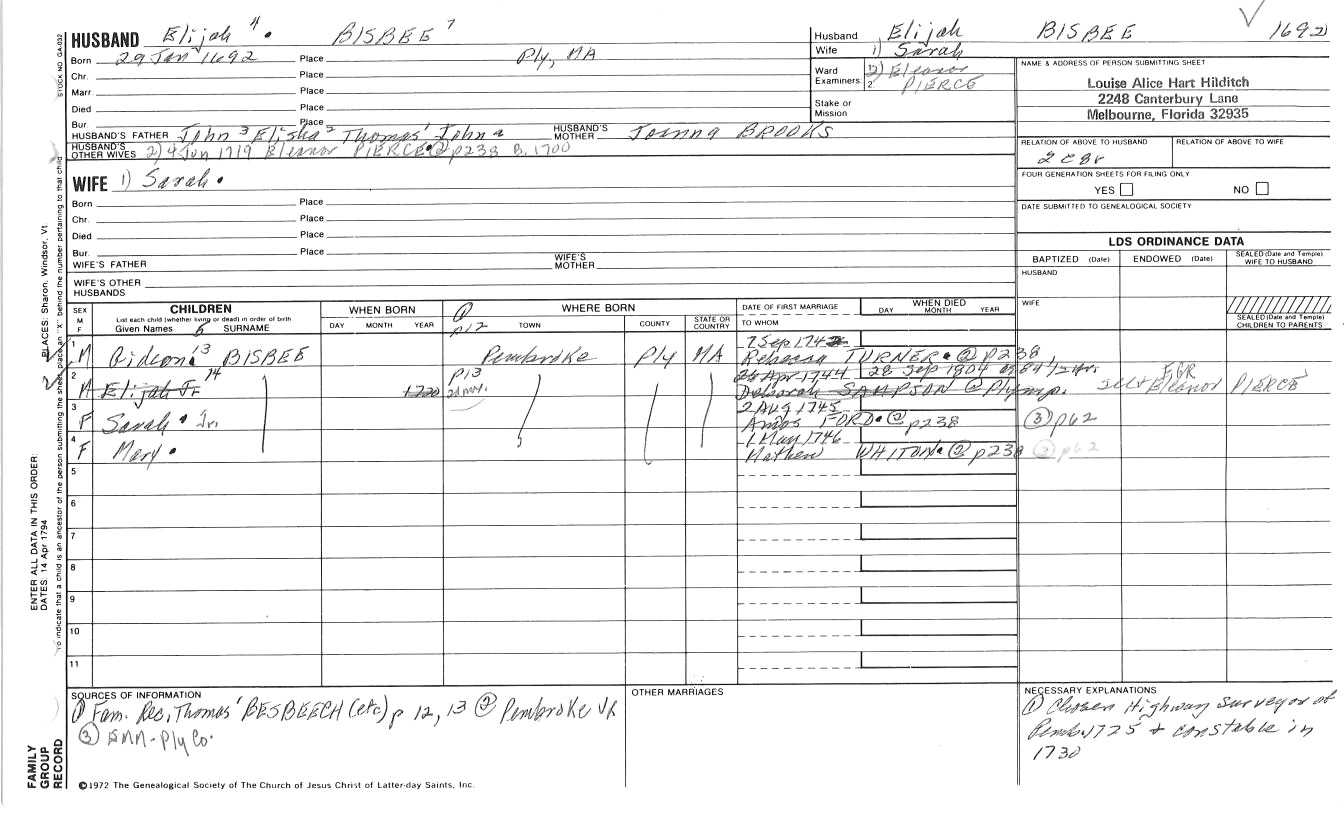 HUSBAND Elijah 4 BISBEE 7
Born 29 Jan 1692 Place Ply, MA
Chr. Place
Marr. Place
Died Place
Bur. Place
HUSBAND'S FATHER John 3 Elisha 2 Thomas 1 John a HUSBAND'S MOTHER Joanna BROOKS
HUSBAND'S OTHER WIVES 2) 9 Jun 1719 Eleanor PIERCE @ p238 B. 1700
Husband Elijah BISBEE 1692)
Wife 1) Sarah
Ward Examiners 1. 2) Eleanor
2. PIERCE
Stake or Mission
NAME & ADDRESS OF PERSON SUBMITTING SHEET
Louise Alice Hart Hilditch
2248 Canterbury Lane
Melbourne, Florida 32935
RELATION OF ABOVE TO HUSBAND RELATION OF ABOVE TO WIFE
FOUR GENERATION SHEETS FOR FILING ONLY
YES NO
DATE SUBMITTED TO GENEALOGICAL SOCIETY
WIFE 1) Sarah
Born Place
Chr. Place
Died Place
Bur. Place
WIFE'S FATHER WIFE'S MOTHER
WIFE'S OTHER HUSBANDS
LDS ORDINANCE DATA
BAPTIZED (Date) ENDOWED (Date) SEALED (Date and Temple) WIFE TO HUSBAND
HUSBAND
WIFE
SEALED (Date and Temple) CHILDREN TO PARENTS
SEX M F
CHILDREN
List each child (whether living or dead) in order of birth
Given Names 6 SURNAME
WHEN BORN
DAY MONTH YEAR
p12
WHERE BORN
TOWN COUNTY STATE OR COUNTRY
DATE OF FIRST MARRIAGE
TO WHOM
WHEN DIED
DAY MONTH YEAR
7 Sep 1742
1 M Gideon 13 BISBEE Pembroke Ply MA Rebecca TURNER @ p238,
2 M Elijah Jr 14 1720 p13 24 Apr 1744 28 Sep 1804
Deborah SAMPSON @ Plymp. Eleanor PIERCE
3 F Sarah Jr. 2 Aug 1745
Amos FORD @ p238 (3) p62
4 F Mary 1 May 1746
Mathew WHITON (2) p238 (3) p62
5
6
7
8
9
10
11
SOURCES OF INFORMATION
(1) Fam. Rec, Thomas 1 BESBEECH (etc) p 12, 13 (2) Pembroke VR
(3) - Ply Co.
OTHER MARRIAGES
NECESSARY EXPLANATIONS
(1) Chosen Highway surveyor at
Pemb. 1725 & constable in
1730
©1972 The Genealogical Society of The Church of Jesus Christ of Latter-day Saints, Inc.
STOCK NO. GA-032
PLACES: Sharon, Windsor, Vt.
ENTER ALL DATA IN THIS ORDER:
DATES: 14 Apr 1794
To indicate that a child is an ancestor of the person submitting the sheet, place an "X" behind the number pertaining to that child.
FAMILY GROUP RECORD